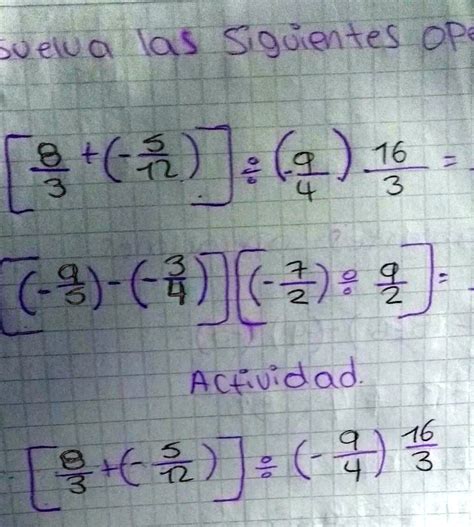 suelva las siguientes ope
[8/3 + (-5/12)] ÷ (-9/4) 16/3 =
[(-9/5) - (-3/4)] [(-7/2) ÷ 9/2] =
Actividad.
[8/3 + (-5/12)] ÷ (-9/4) 16/3